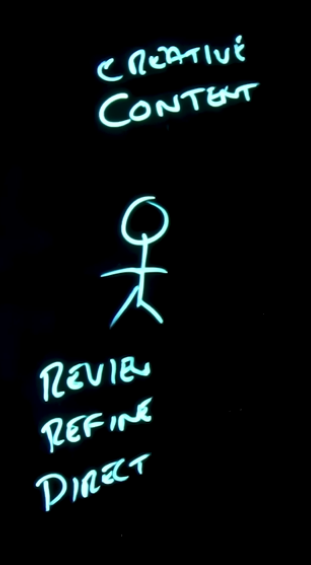 CREATIVE
CONTENT
REVIEW
REFINE
DIRECT